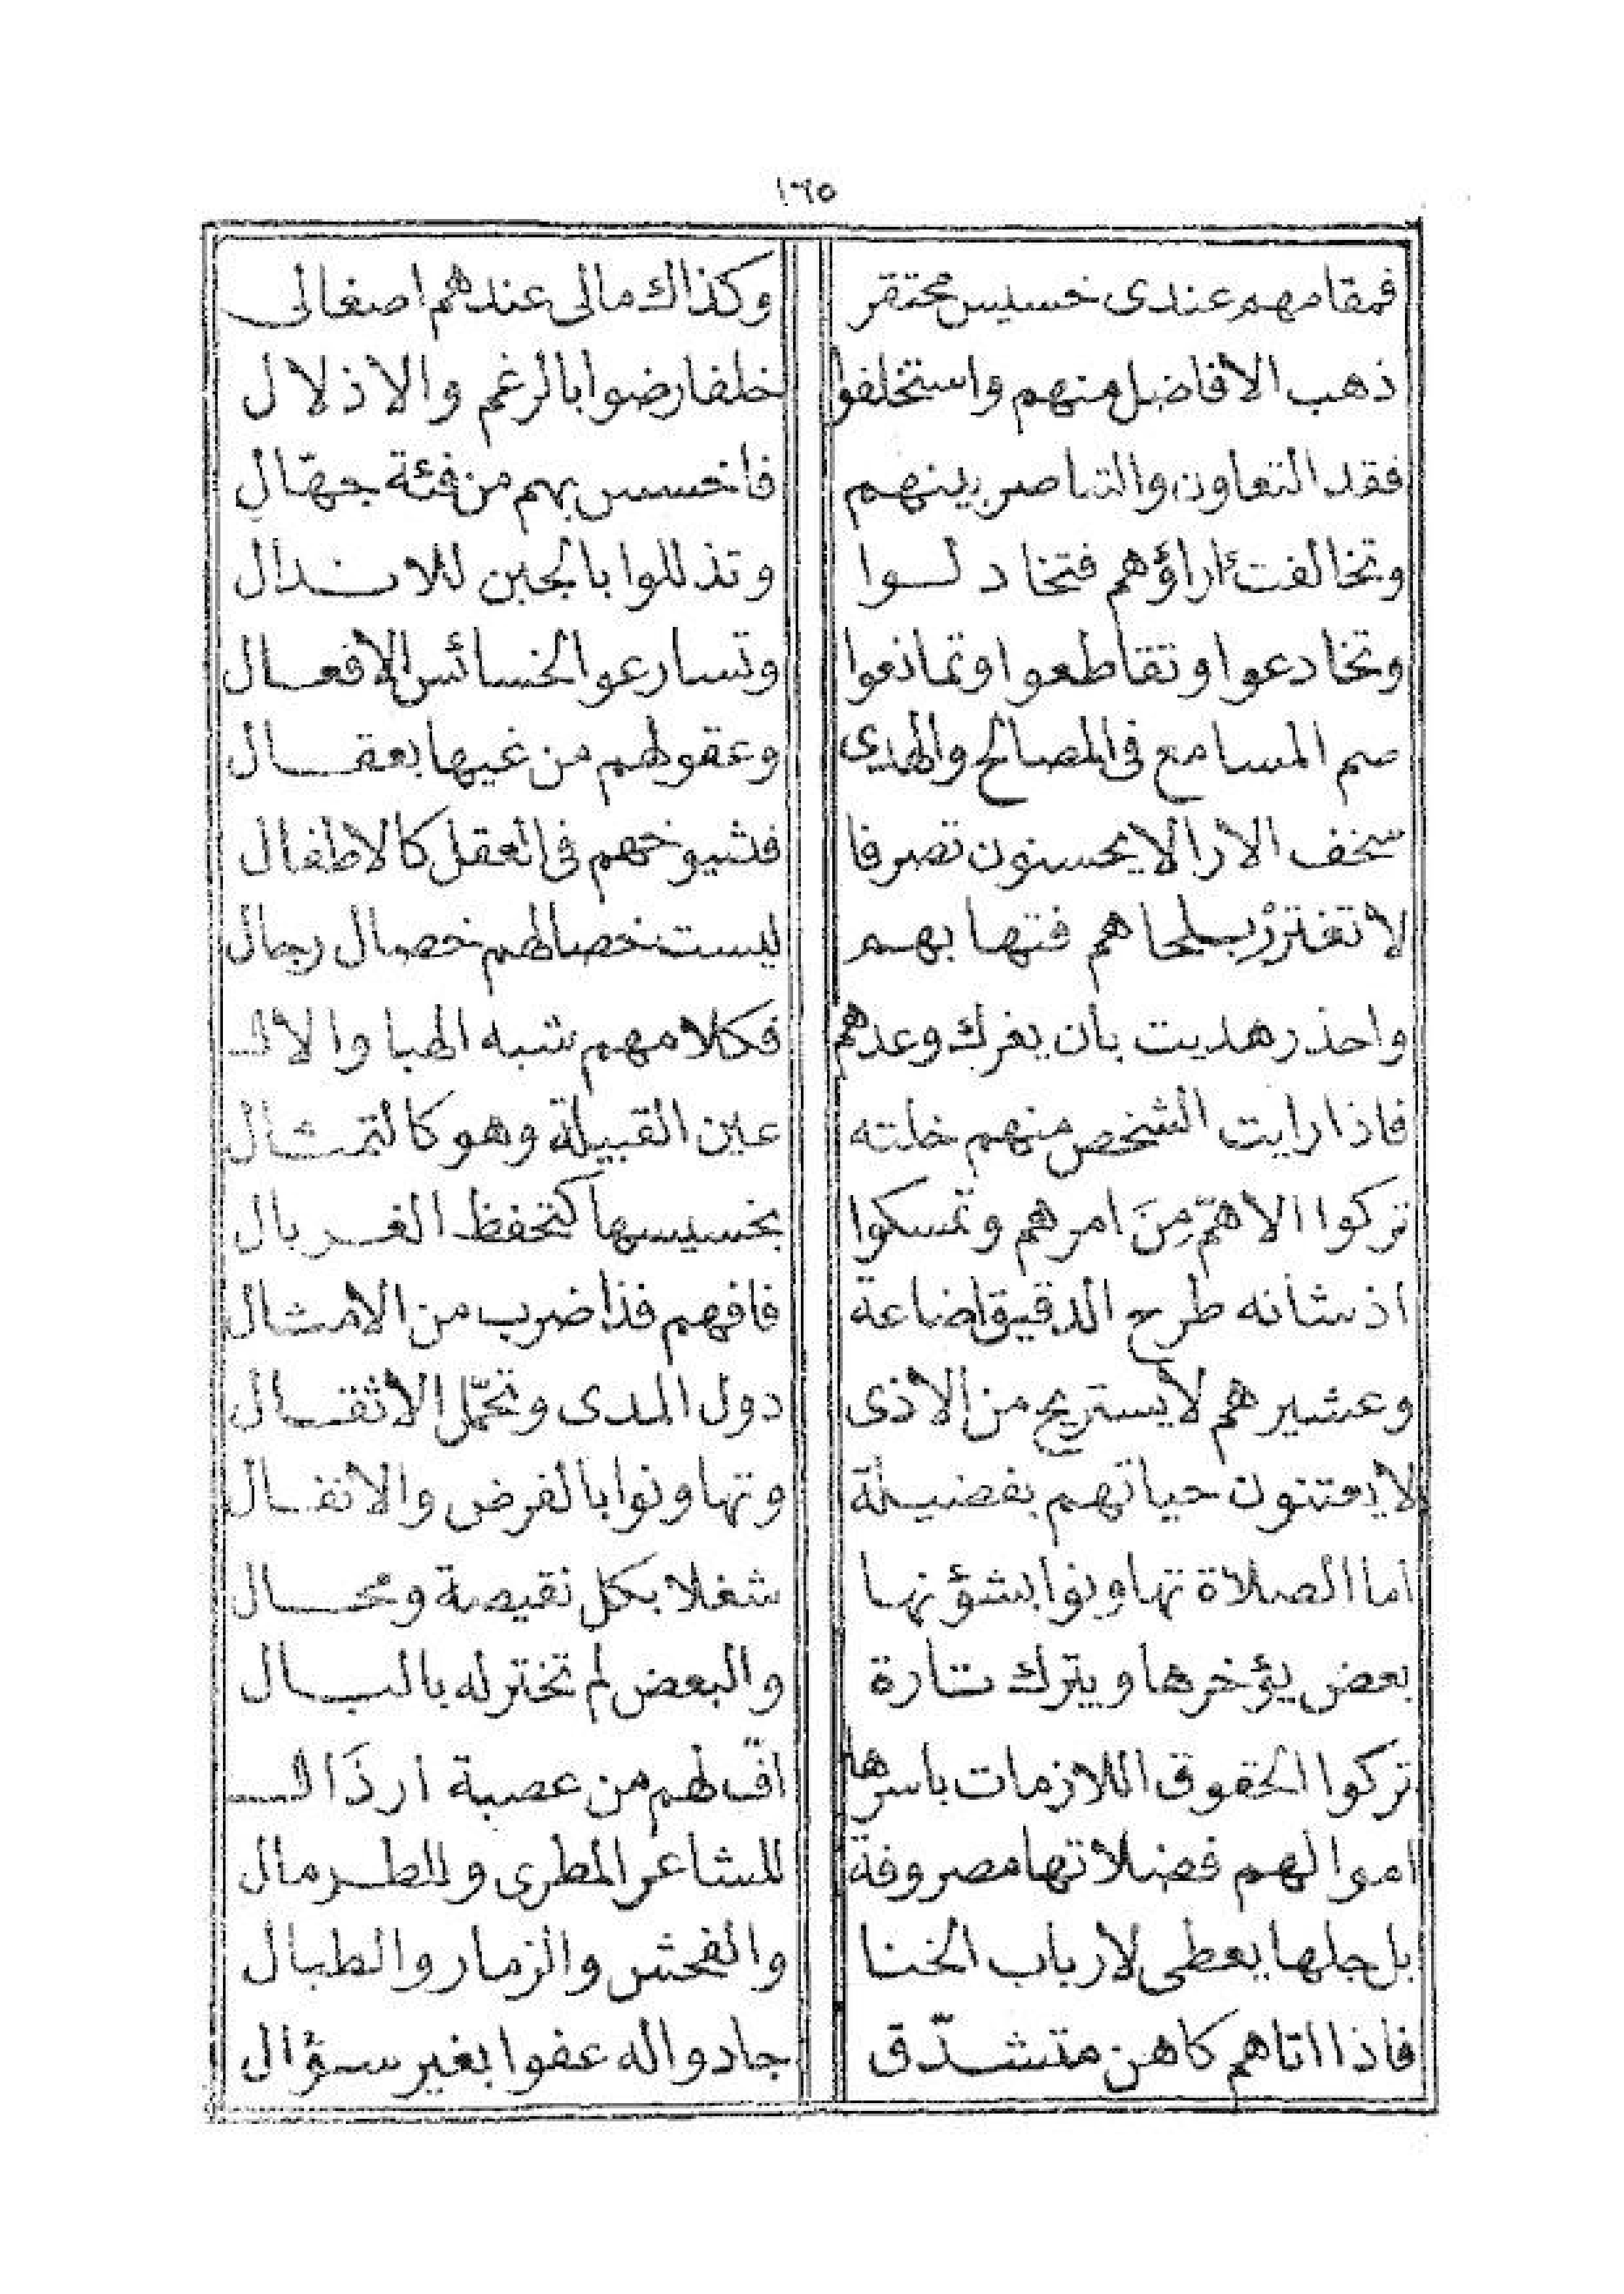 ١٦٥
فمقامهم عندى خسيس محتقر وكذاك مالى عندهم اصغالى
ذهب الافاضل منهم واستخلفوا خلفا رضوا بالرغم والاذلال
فقد التعاون والتناصر بينهم فاخسس بهم من فئة جهّال
وتخالفت ءاراؤهم فتخادلوا وتذللوا بالجبن للانذال
وتخادعوا وتقاطعوا وتمانعوا وتسارعوا لخسائس الافعال
صم المسامع فى المصالح والهدى وعقولهم من غيها بعقال
سخف الارا لا يحسنون تصرفا فشيوخهم فى العقل كالاطفال
لا تغترْر بلحاهم فتها بهم ليست خصالهم خصال رجال
واحذر هديت بأن يغرك وعدهم فكلامهم شبه الهبا والال
فاذا رايت الشخص منهم خلته عين القبيلة وهو كالتمثال
تركوا الاهمّ مِنَ امرهم وتمسكوا بخسيسها كتحفظ الغربال
اذ شأنه طرح الدقيق اضاعة فافهم فذا ضرب من الامثال
وعشيرهم لا يستريح من الاذى دول المدى وتحمّل الاثقال
لا يعتنون حياتهم بفضيلة وتهاونوا بالفرض والانفال
اما الصلاة تهاونوا بشؤنها شغلا بكل نقيصة ومحال
بعض يؤخرها ويترك تارة والبعض لم تخترله بالبال
تركوا الحقوق اللازمات باسرها افّ لهم من عصبة ارذَال
اموالهم فضلاتها مصروفة للشاعر المطرى وللطرمال
بل جلها يعطى لارباب الخنا والفحش والزمار والطبال
فاذا اتاهم كاهن متشدّق جادوا له عفوا بغير سؤال